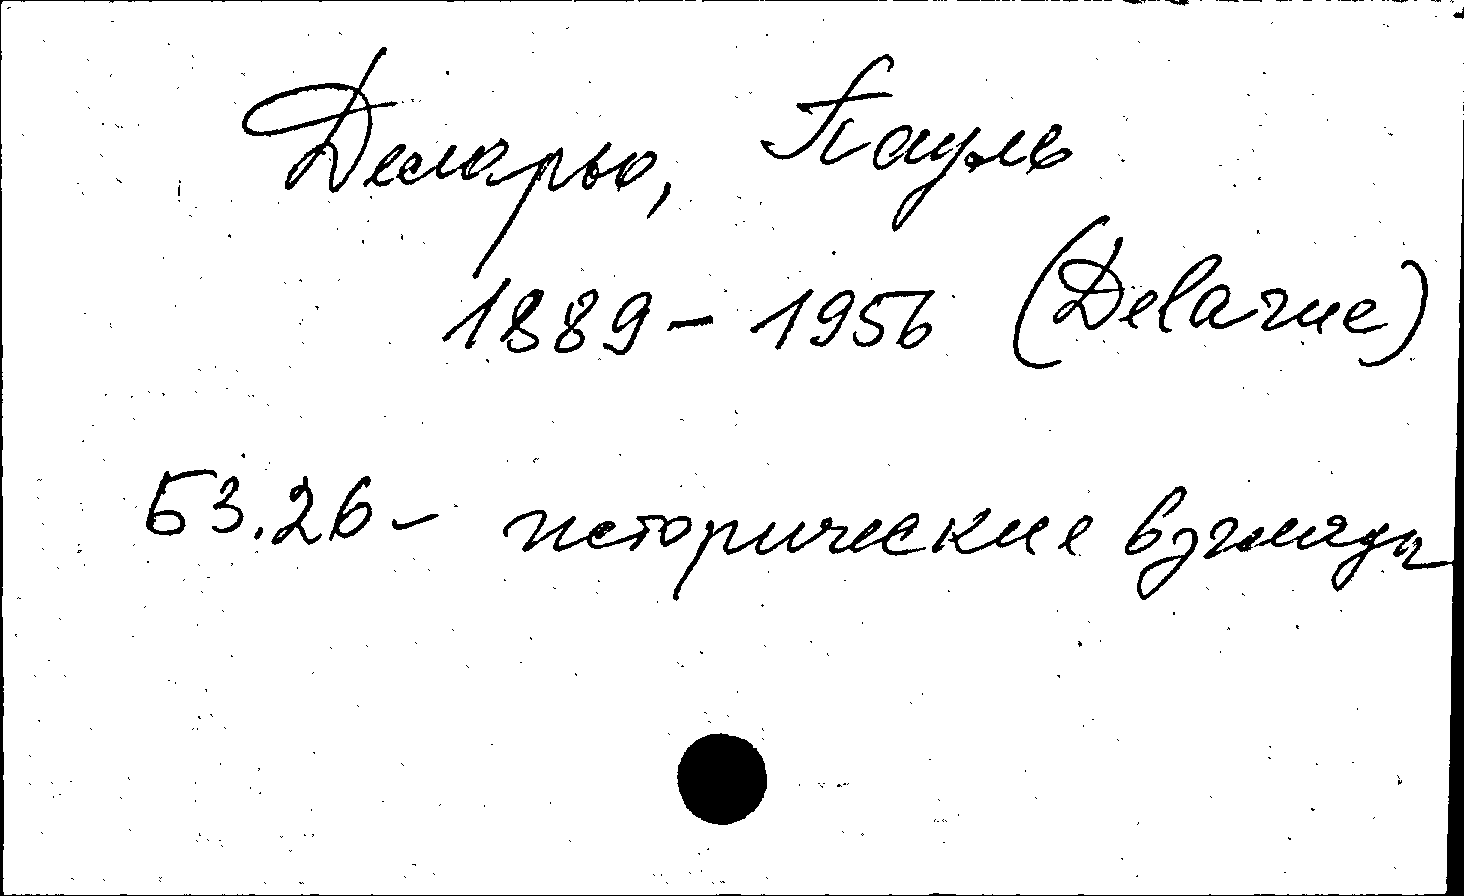 Деларью, Пауль
1889 – 1956 (Delarue)
53.26 – исторические взгляды